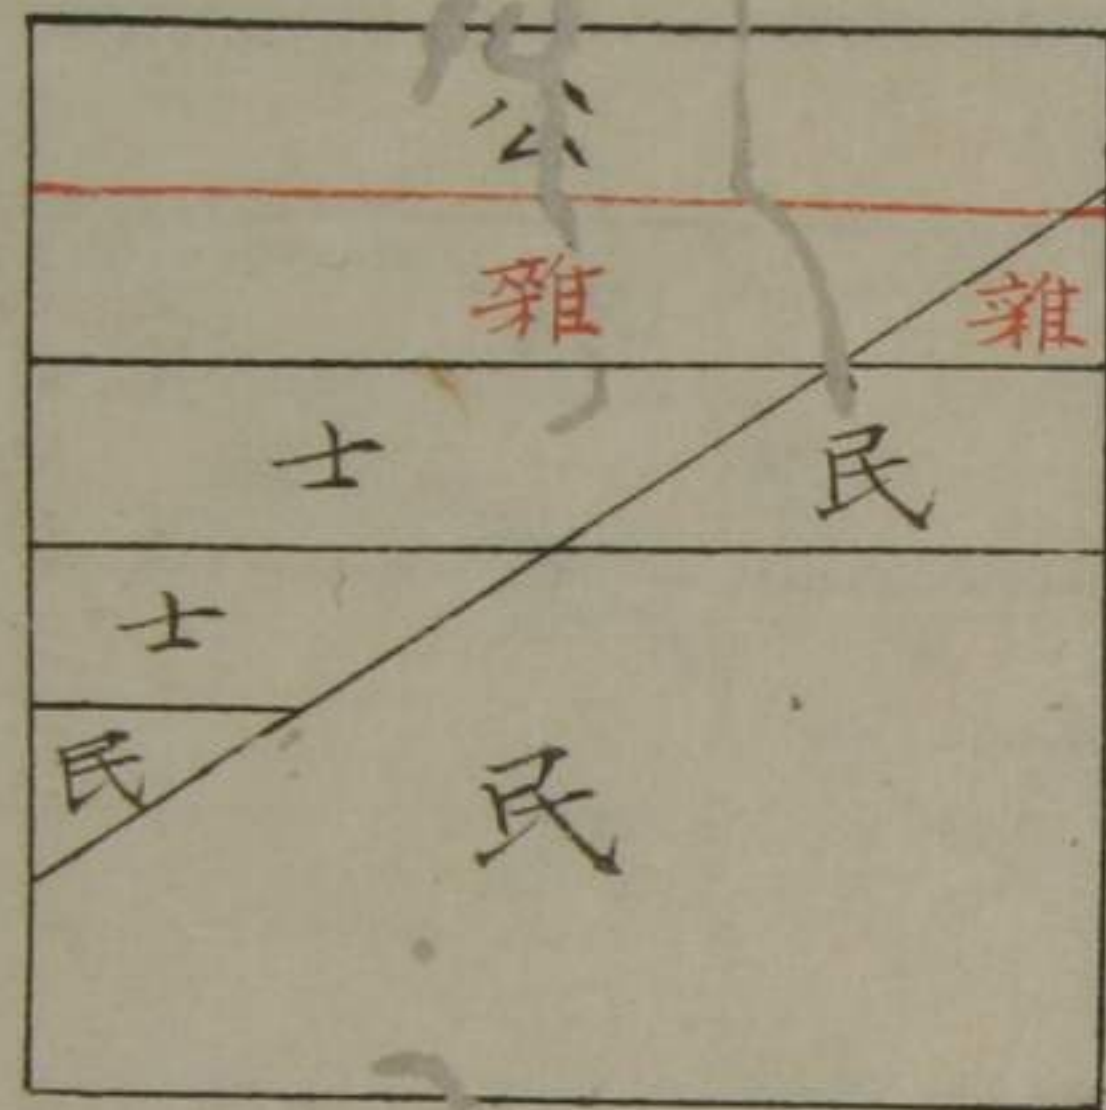 公
雜 雜
士 民
士
民 民